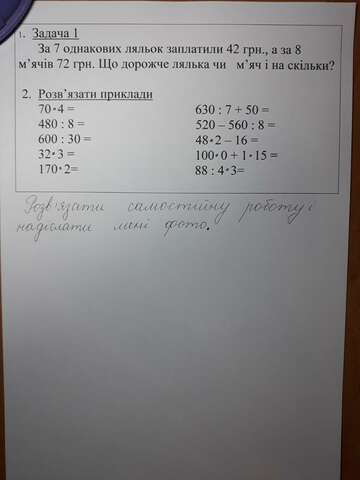 1. Задача 1
За 7 однакових ляльок заплатили 42 грн., а за 8
м’ячів 72 грн. Що дорожче лялька чи м’яч і на скільки?
2. Розв’язати приклади
70•4 = 630 : 7 + 50 =
480 : 8 = 520 – 560 : 8 =
600 : 30 = 48•2 – 16 =
32•3 = 100•0 + 1•15 =
170•2= 88 : 4•3=
Розв'язати самостійну роботу і
надіслати мені фото.